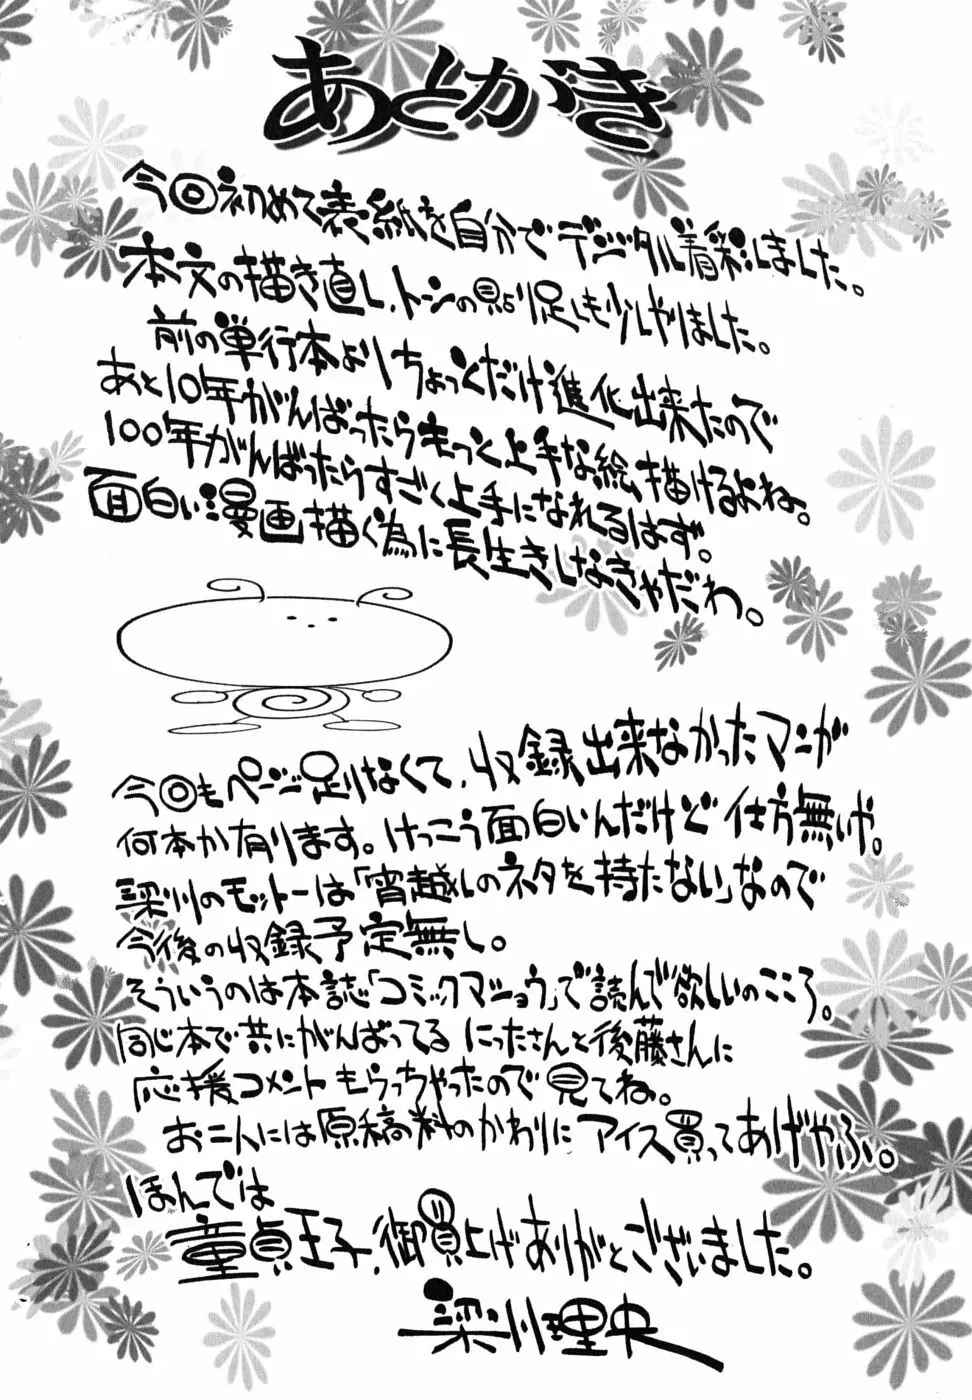 あとがき
今回初めて表紙を自分でデジタル着彩しました。
本文の描き直し、トーンの貼り足しも少しやりました。
前の単行本よりちょっくだけ進化出来たので
あと10年がんばったらもっと上手な絵描けるよね。
100年がんばったらすごく上手になれるはず。
面白い漫画描く為に長生きしなきゃだわ。
今回もページ足りなくて、収録出来なかったマンガ
何本か有ります。けっこう面白いんだけど仕方無いや。
梁川のモットーは「宵越しのネタを持たない」なので
今後の収録予定無し。
そういうのは本誌「コミックマショウ」で読んで欲しいのこころ。
同じ本で共にがんばってるにったさんと後藤さんに
応援コメントもらっちゃったので見てね。
お二人には原稿料のかわりにアイス買ってあげやふ。
ほんでは
童貞王子、御買上げありがとございました。
梁川理央